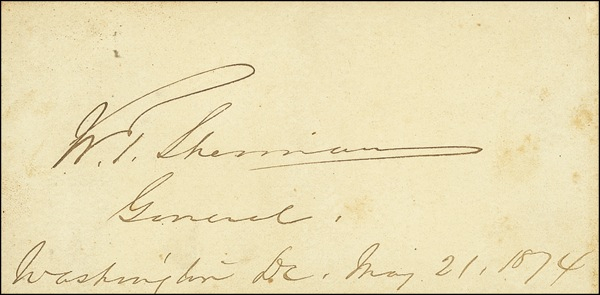 W. T. Sherman
General.
Washington D.C. May 21, 1874